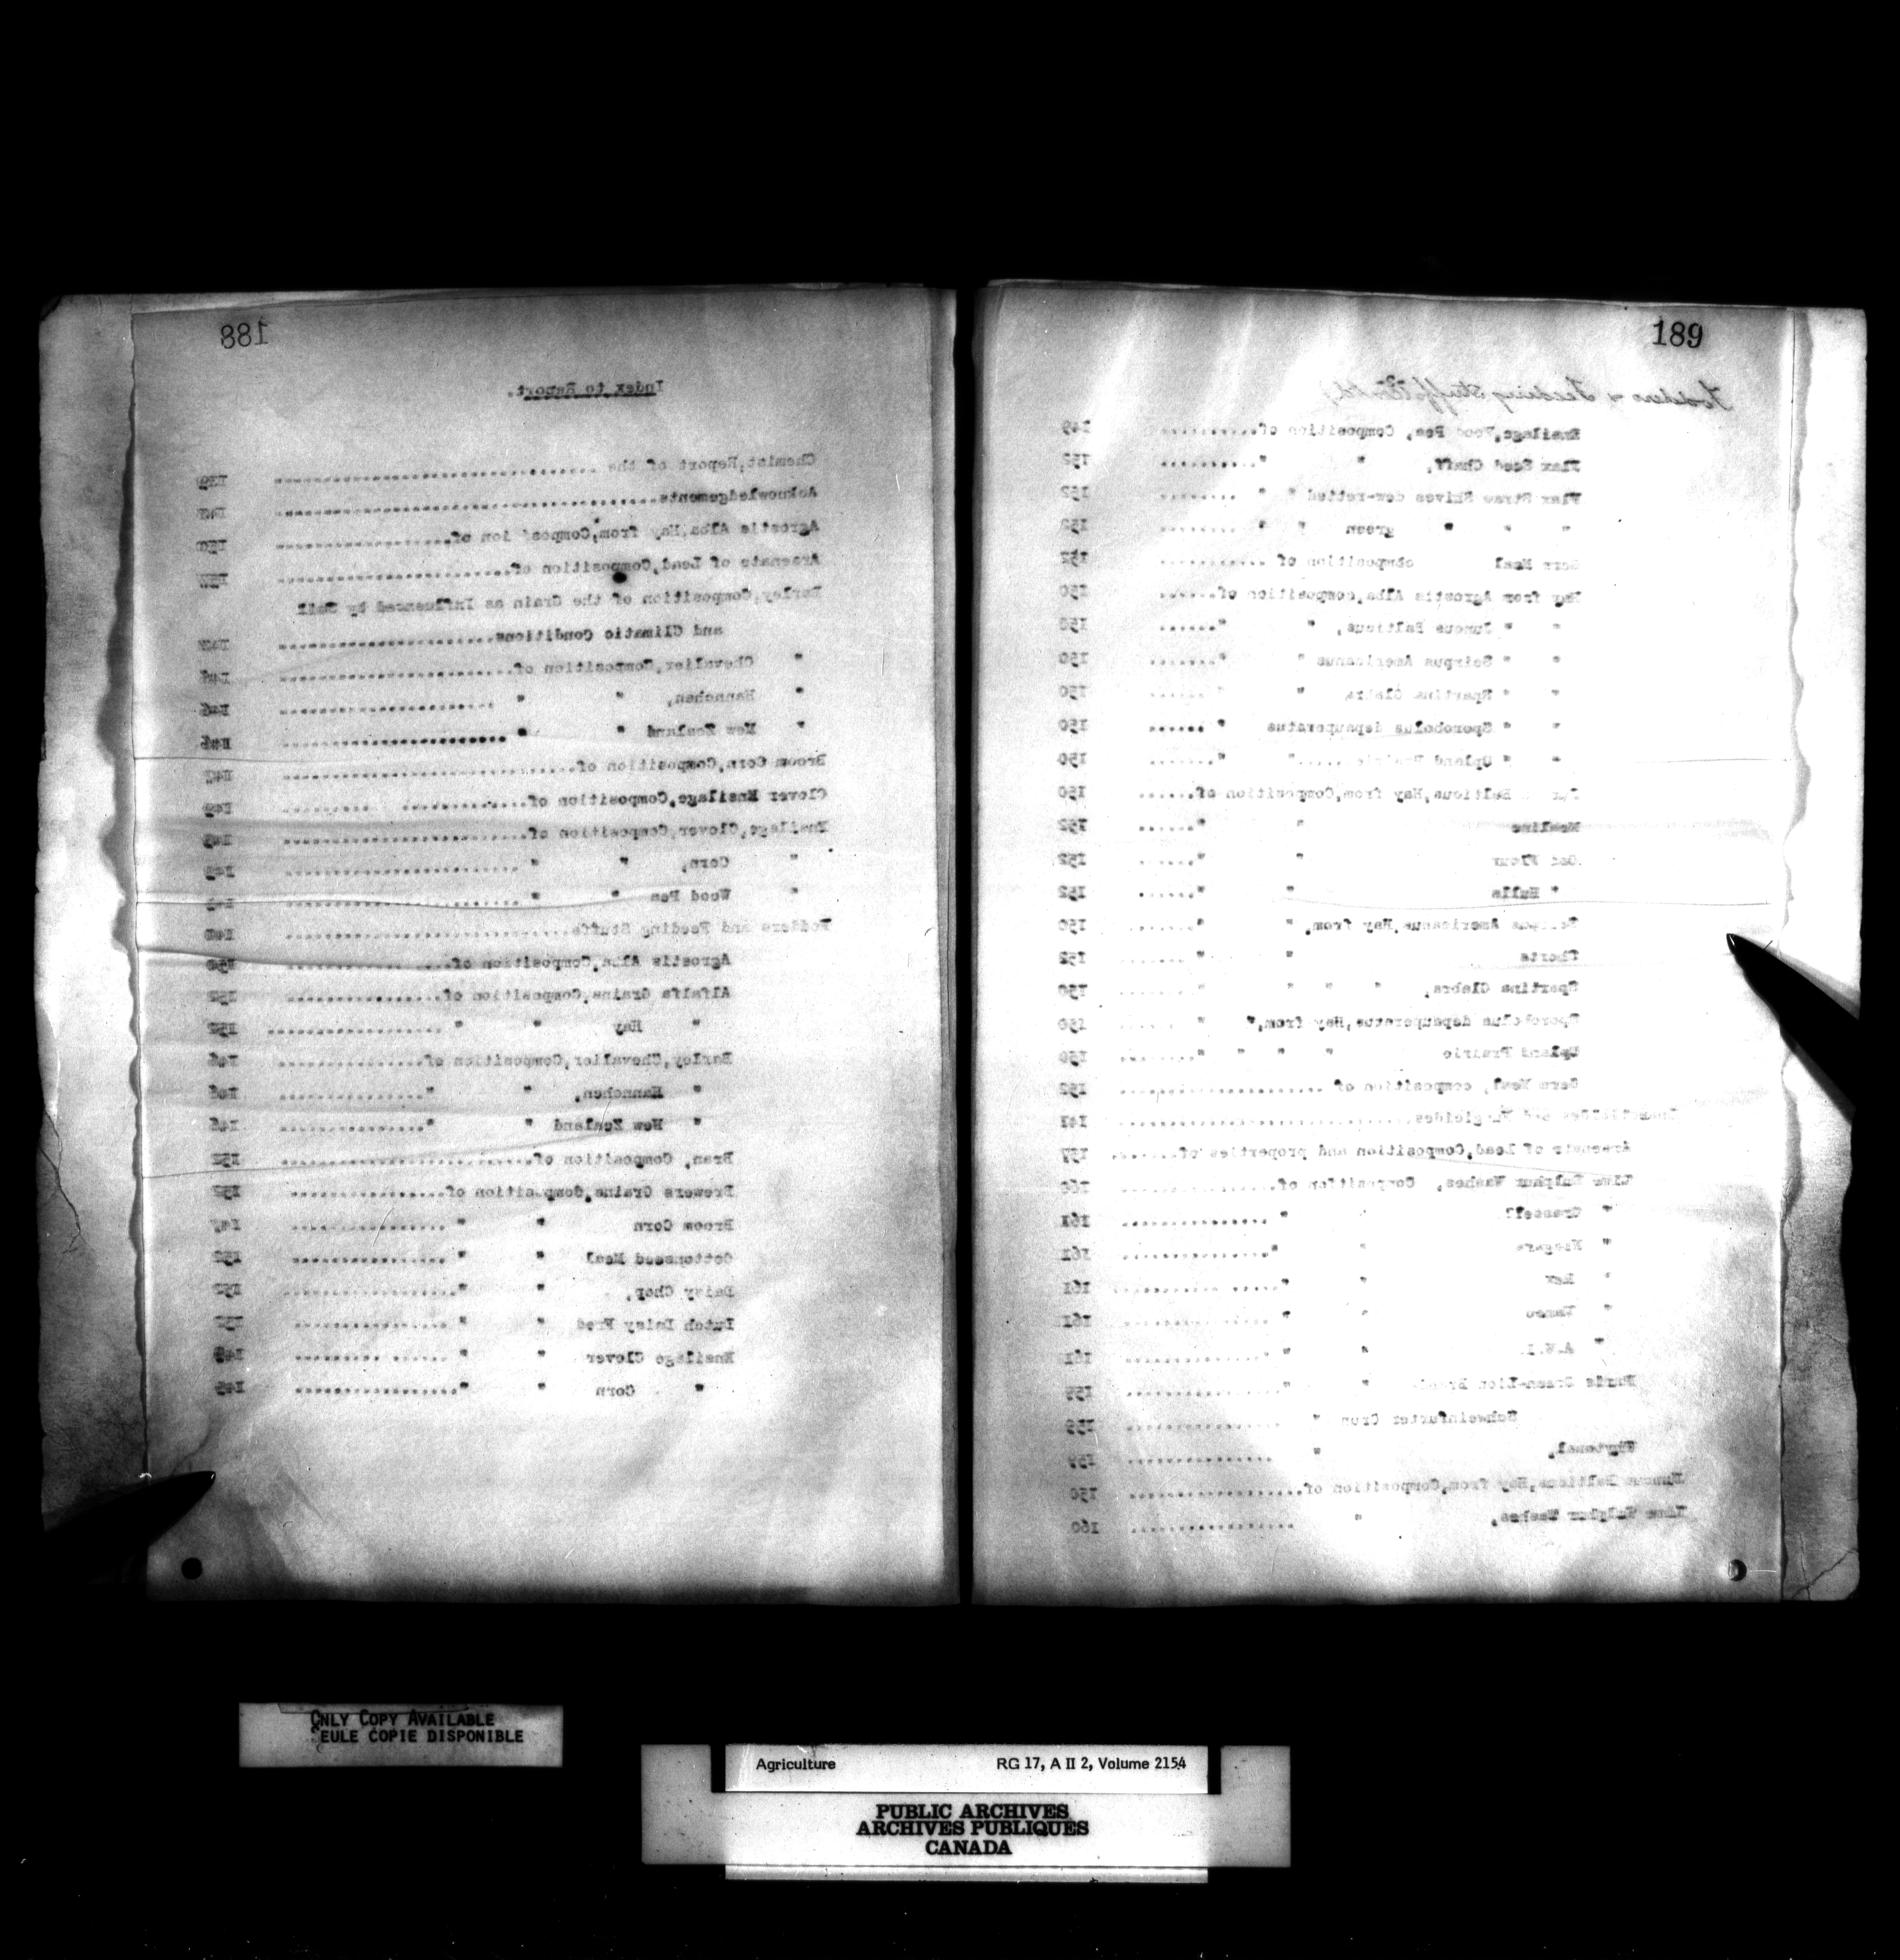 188
Index to Report.
Chemist, Report of the
Acknowledgements
Agrostis Alba, Hay from, Composition of
Arsenate of Lead, Composition of
Barley, Composition of the Grain as Influenced by Soil
and Climatic Conditions
" Chevalier, Composition of
" Hannchen, " " I46
" New Zealand " " I46
Broom Corn, Composition of I47
Clover Ensilage, Composition of I49
Ensilage, Clover, Composition of I49
" Corn, " "
" Wood Pea " "
Fodders and Feeding Stuffs
Agrostis Alba, Composition of I50
Alfalfa Grains, Composition of I52
" Hay " " I52
Barley, Chevalier, Composition of I46
" Hannchen, " " I46
" New Zealand " " I46
Bran, Composition of I52
Brewers Grains, Composition of I52
Broom Corn " " I47
Cottonseed Meal " " I52
Daisy Chop, " " I52
Dutch Daisy Feed " " I52
Ensilage Clover " " I49
" Corn " " I49
189
Fodders & Feeding Stuffs (Cont'd.)
Ensilage, Wood Pea, Composition of I49
Flax Seed Chaff, " " I52
Flax Straw Shives dew-retted " " I52
" " " green " " I52
Germ Meal composition of I52
Hay from Agrostis Alba, composition of I50
" " Juncus Balticus, " " I50
" " Scirpus Americanus " " I50
" " Spartina Glabra " " I50
" " Sporobolus depauperatus " I50
" " Upland Prairie " " I50
Juncus Balticus, Hay from, Composition of I50
Mealine " " I52
Oat Flour " " I52
" Hulls " " I52
Scirpus Americanus, Hay from, " " I50
Shorts " " I52
Spartina Glabra, " " " " I50
Sporobolus depauperatus, Hay from, " " I50
Upland Prairie " " " " I50
Germ Meal, composition of I52
Insecticides and Fungicides I47
Arsenate of Lead, Composition and properties of I57
Lime Sulphur Washes, Composition of I60
" Grasselli " " I61
" Niagara " " I61
" Rex " " I61
" Vanco " " I61
" " " I61
Paris Green-Lion Brand " " I59
Schweinfurter Grun " I59
" I59
Juncus Balticus, Hay from, Composition of I50
Lime Sulphur Washes, " I60
ONLY COPY AVAILABLE
SEULE COPIE DISPONIBLE
Agriculture RG 17, A II 2, Volume 2154
PUBLIC ARCHIVES
ARCHIVES PUBLIQUES
CANADA